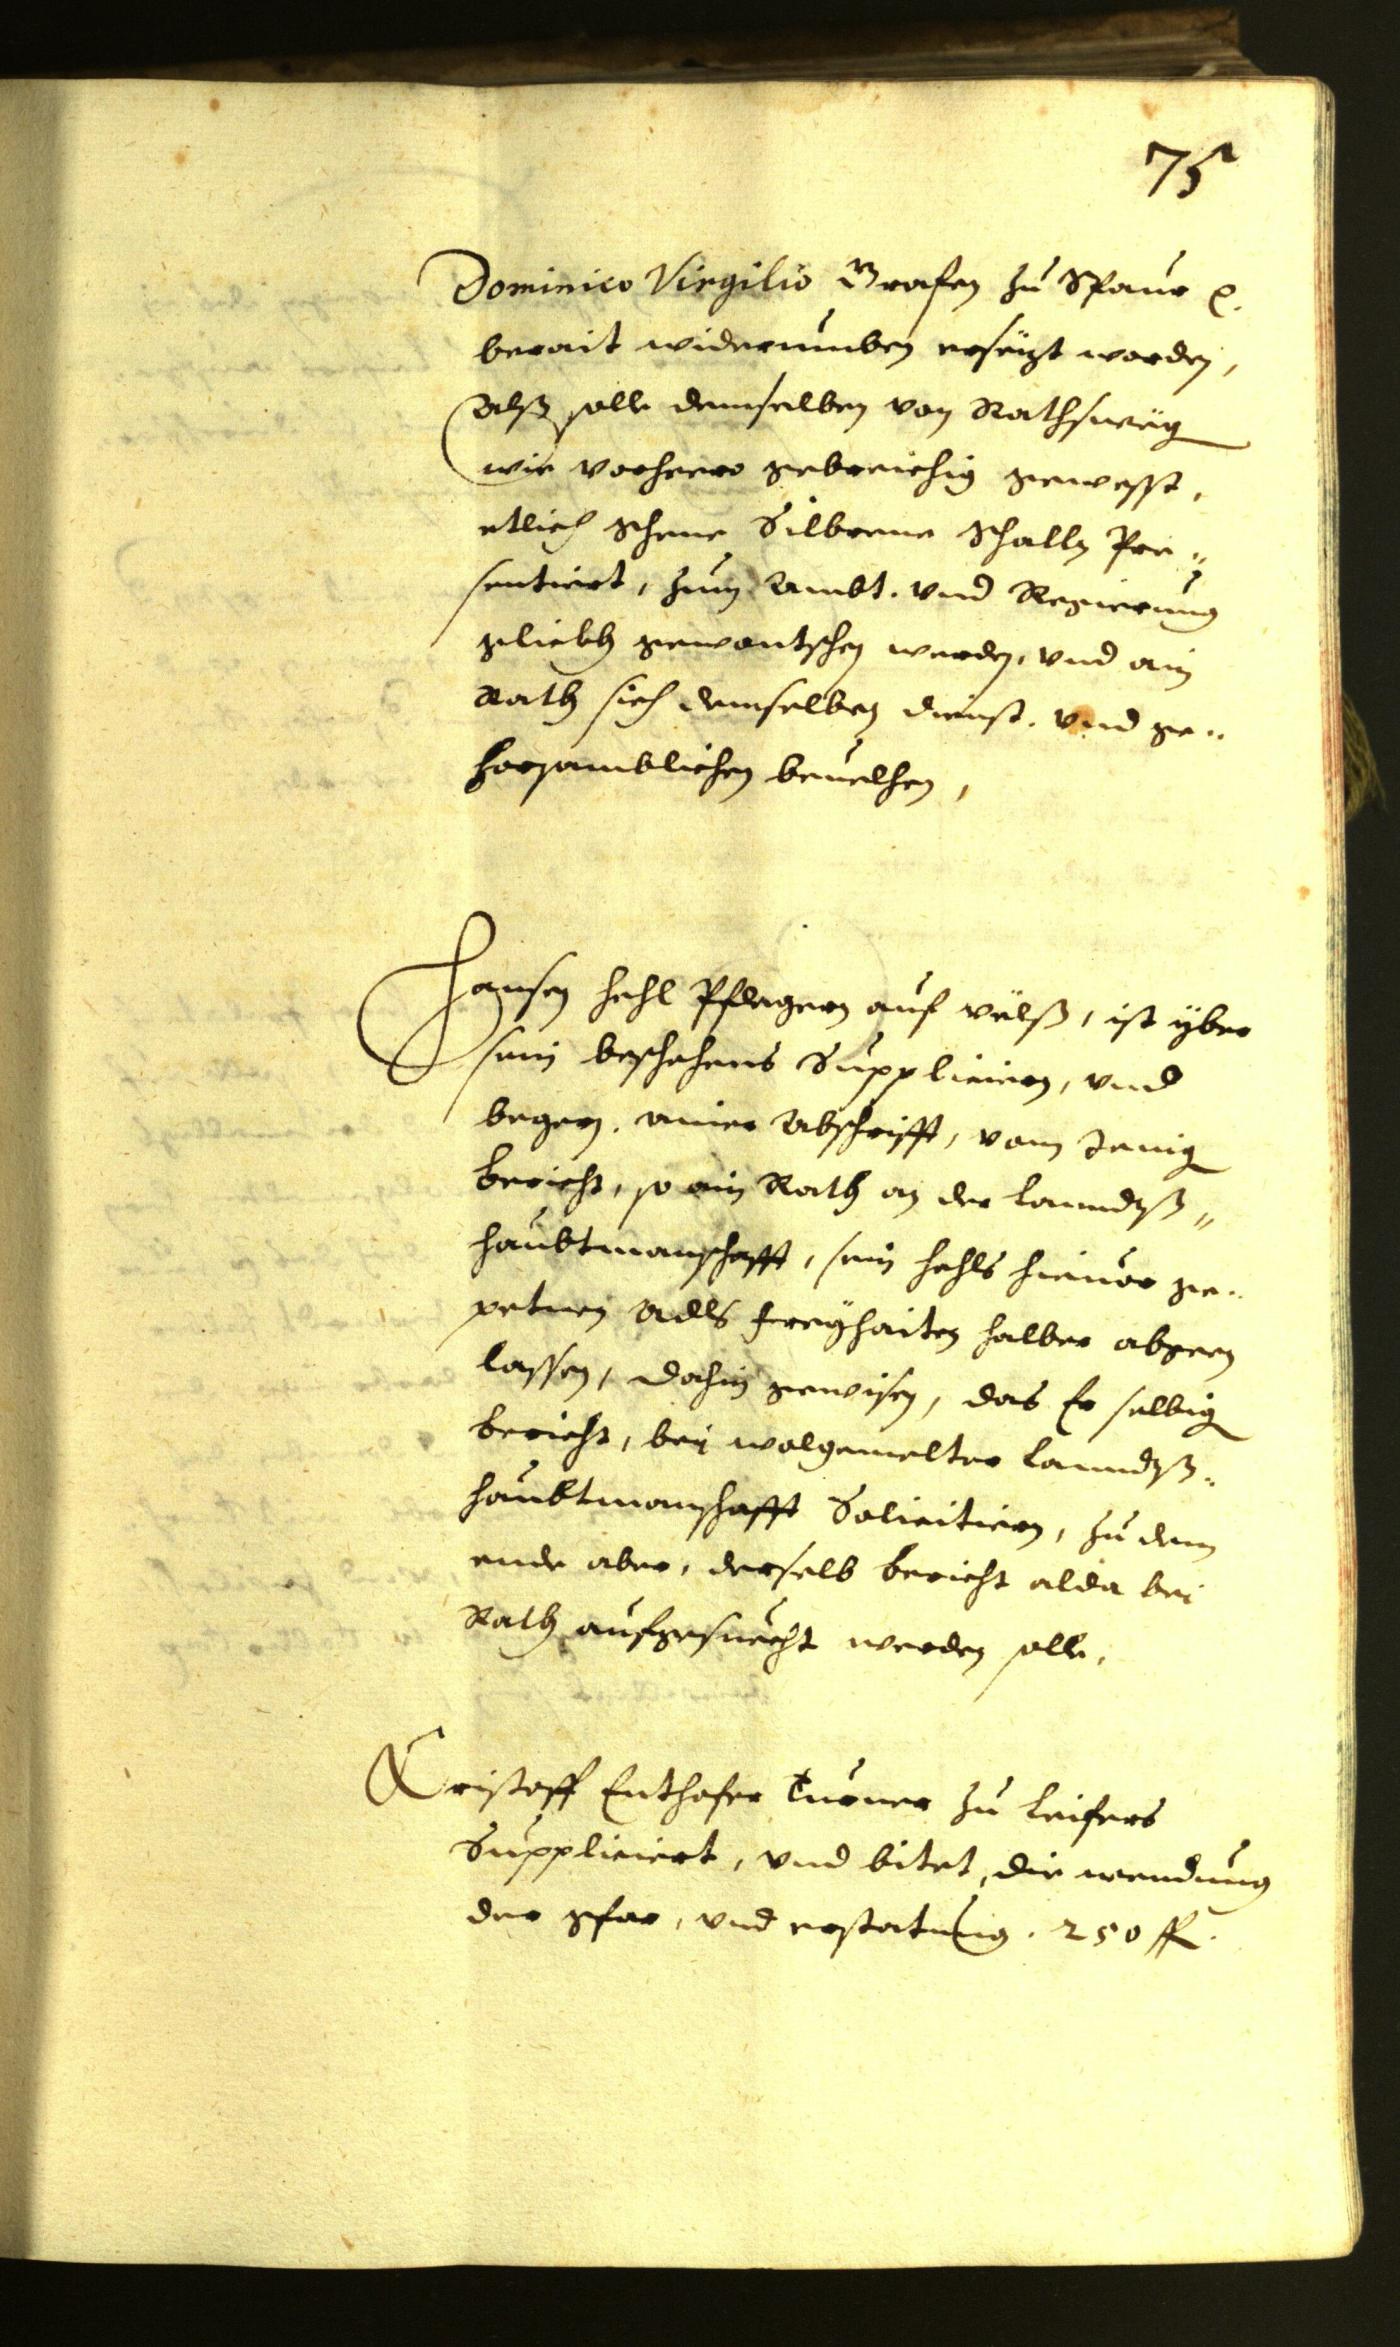 75
Dominico Virgilio Grafen zu Spaur etc.
berait widerumben ersezt worden,
Alß solle demselben von Rathsweg
wie vorhero gebreichig gewesst,
etlich schene Silbrene Schalln Pre„
sentiert, zum Ambt. vnd Regierung
glickh gewontschen werden, vnd ain
Rath sich demselben dienst. vnd ge„
horsamblichen beuelhen,
Hansen Hehl Pflegern auf Velß, ist yber
sein beschehens Supplicieren, vnd
begern. ainer Abschrifft, vom Jenig
bericht, so ain Rath an der Lanndtß„
haubtmanschafft, sein Hehls hieuor ge„
petnen Adls freyhaiten halber abgeen
lassen, dahin gewisen, das Er selbig
bericht, bei wolgemelter Lanndtß„
haubtmanschafft Solicitiern, zu dem
ende aber, derselb bericht alda bei
Rath aufgesuecht werden solle,
Cristoff Enthofer Curner zu Leifers
Suppliciert, vnd bitet, die wendung
der gfar, vnd erstatung. 250 fl.